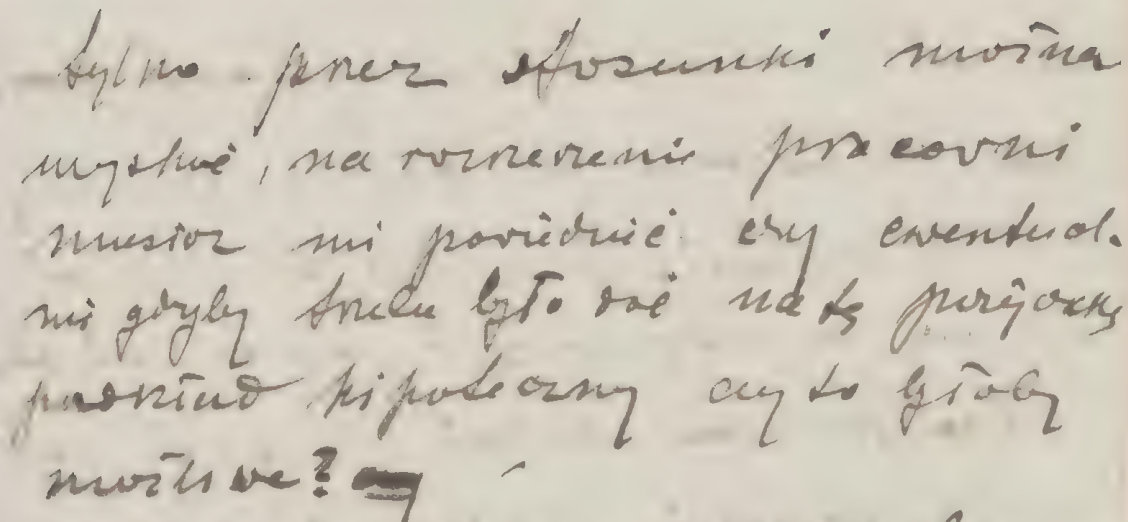 tylko przez stosunki można
uzyskać, na rozszerzenie pracowni
musisz mi powiedzieć czy ewentual-
nie gdyby trzeba było dać na tę pożyczkę
podkład hipoteczny czy to byłoby
możliwe?